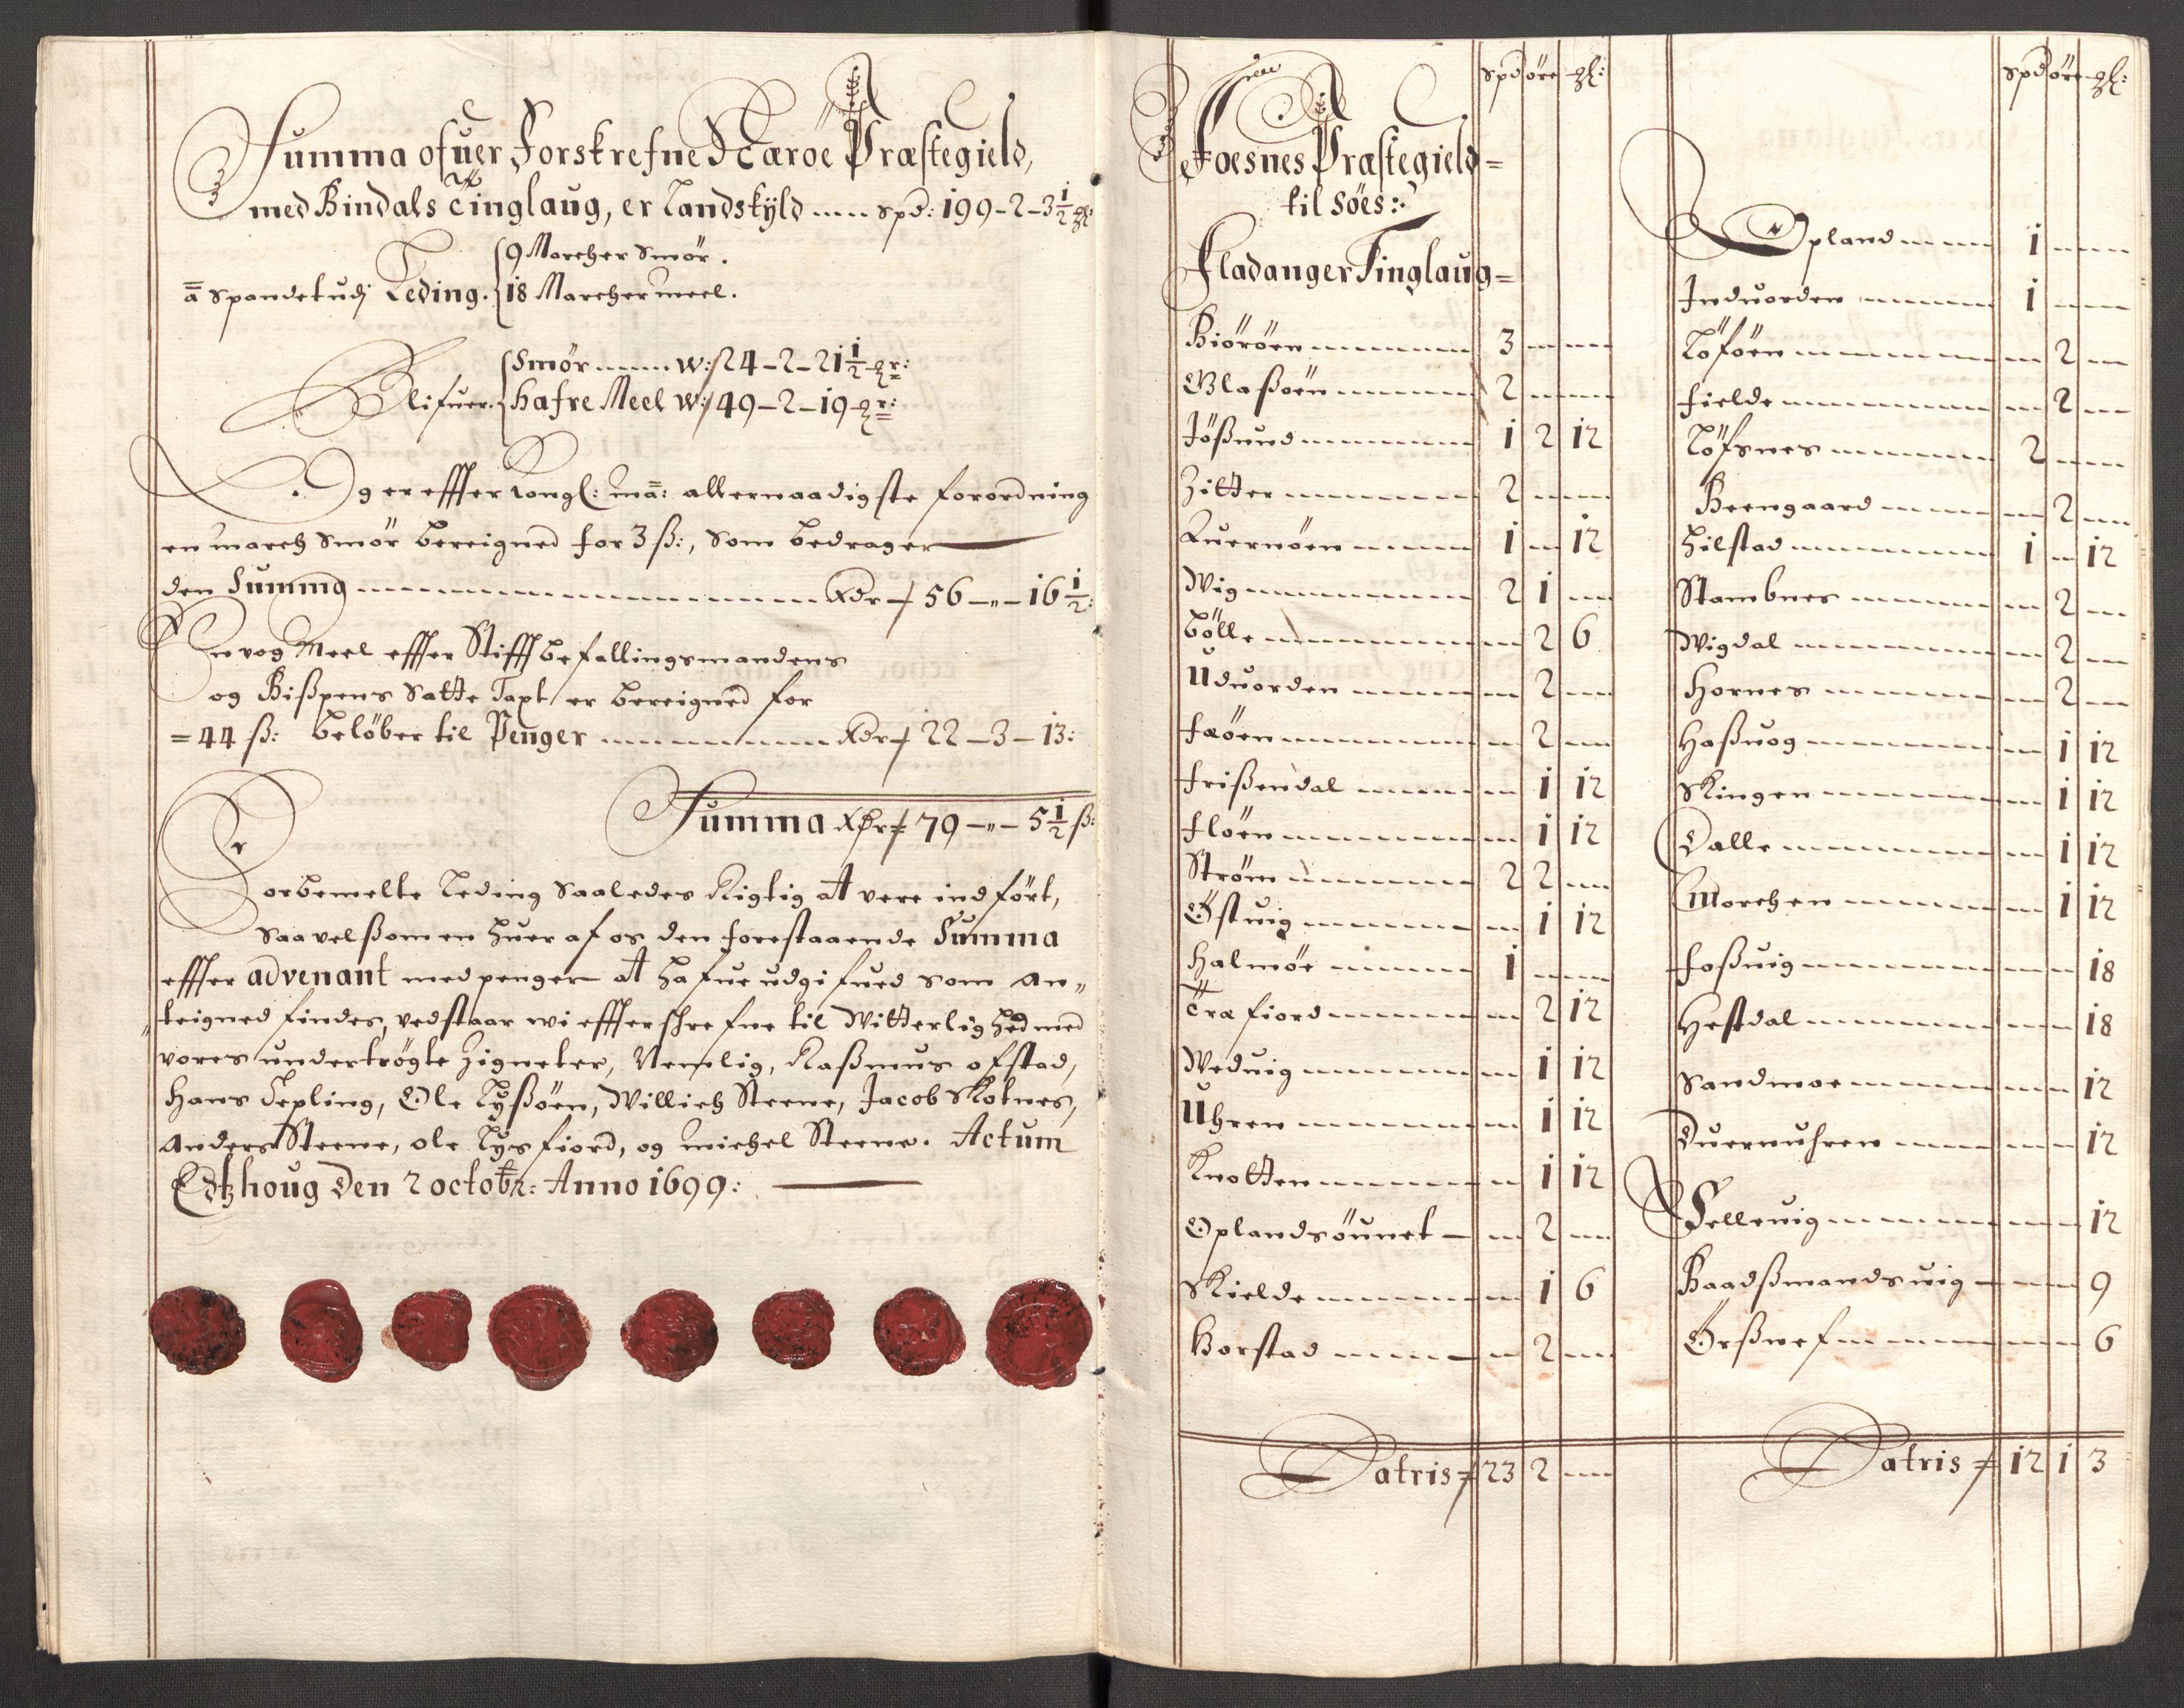 Summa ofuer Forskrefne Næröe Præstegield,
med Bindals Tinglaug, er Landskyld ---- spd: 199-2-3½ gl:
9 Marcher Smör.
ā Spandet udj Leding. 18 Marcher meel.
Smör ---- W: 24-2-21½ gr:
Blifuer. Hafre Meel W: 49-2-19 gr:
Og er effter Kongl: Ma: allernaadigste forordning
en march Smör bereigned for 3 ß:, som bedrager
den Summa ---- Rdr 56-"-16½:
En vog Meel effter Stifftbefallingsmandens
og Bispens satte Taxt er bereigned for
=44 ß: beløber til Penger ---- Rdr 22-3-13:
Summa Rdr 79-"-5½ ß:
Forbemelte Leding saaledes Rigtig at vere indført,
saavelsom en huer af os den forestaaende Summa
effter advenant med penger at hafue udgifued som an„
„teigned findes, vedstaar wi effterskrefne til Witterlighed med
vores undertrögte Zigneter, Nemlig, Raßmus ofstad,
Hans Tepling, Ole Lyßöen, Willich Steene, Jacob Skotnes,
Anders Steene, ole Lysfiord, og michel Steene. Actum
Edtzhoug den 2 octobr: Anno 1699:
spd öre gl:
Foesnes Præstegield=
til Söes:
Fladanger Tinglaug=
Biöröen ---- 3 -- --
Blaßöen ---- 2 -- --
Jößund ---- 1 2 12
Zitter ---- 2 -- --
Quernöen ---- 1 -- 12
Wig ---- 2 1 --
Bölle ---- -- 2 6
Uduorden ---- -- 2 --
Faöen ---- -- 2 --
Frißendal ---- -- 1 12
Flöen ---- -- 1 12
Ström ---- 2 2 --
Östuig ---- -- 1 12
Halmöe ---- 1 -- --
Træfiord ---- -- 2 12
Weduig ---- -- 1 12
Uhren ---- -- 1 12
Knotten ---- -- 1 12
Oplandsöunet -- -- 2 --
Skielde ---- -- 1 6
Horstad ---- -- 2 --
Latris 23 2 --
spd öre gl:
Opland ---- 1 -- --
Induorden ---- 1 -- --
Löföen ---- -- 2 --
Fielde ---- -- 2 --
Löfsnes ---- 2 -- --
Beengaard ---- -- 2 --
Hilstad ---- 1 -- 12
Stambnes ---- -- 2 --
Wigdal ---- -- 2 --
Hornes ---- -- 2 --
Haßuog ---- -- 1 12
Skingen ---- -- 1 12
Dalle ---- -- 1 12
Morchen ---- -- 1 12
Foßuig ---- -- -- 18
Hestdal ---- -- -- 18
Sandmoe ---- -- -- 12
Duernuhren ---- -- -- 12
Selleuig ---- -- -- 12
Baadßmandsuig -- -- -- 9
-- -- 6
Latris 12 1 3